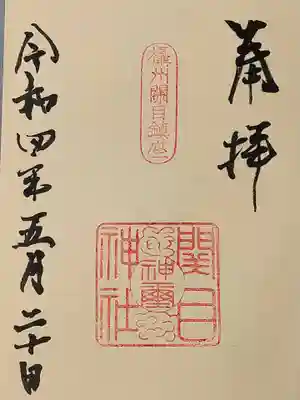 奉拝
攝州關目鎮座
關目
神社
神璽
令和四年五月二十日